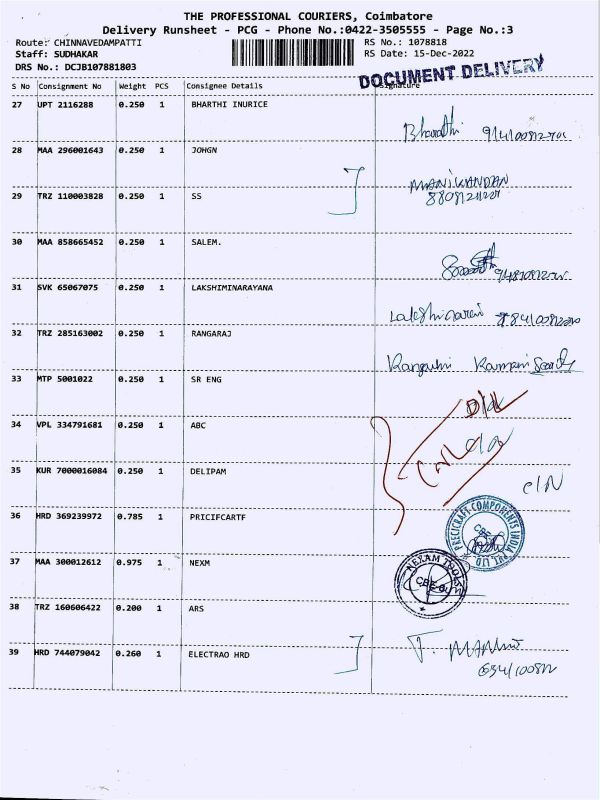 THE PROFESSIONAL COURIERS, Coimbatore
Delivery Runsheet - PCG - Phone No.:0422-3505555 - Page No.:3
Route: CHINNAVEDAMPATTI RS No.: 1078818
Staff: SUDHAKAR RS Date: 15-Dec-2022
DRS No.: DCJB107881803
DOCUMENT DELIVERY
S No Consignment No Weight PCS Consignee Details Signature
27 UPT 2116288 0.250 1 BHARTHI INURICE
Bharathi
28 MAA 296001643 0.250 1 JOHGN
MANIKANDAN
29 TRZ 110003828 0.250 1 SS
30 MAA 858665452 0.250 1 SALEM.
31 SVK 65067075 0.250 1 LAKSHIMINARAYANA
32 TRZ 285163002 0.250 1 RANGARAJ
33 MTP 5001022 0.250 1 SR ENG
34 VPL 334791681 0.250 1 ABC
35 KUR 7000016084 0.250 1 DELIPAM
36 HRD 369239972 0.785 1 PRICIFCARTF
PRECICRAFT COMPONENTS INDIA PVT LTD
CBE
37 MAA 300012612 0.975 1 NEXM
NEXAM
38 TRZ 160606422 0.200 1 ARS
39 HRD 744079042 0.260 1 ELECTRAO HRD